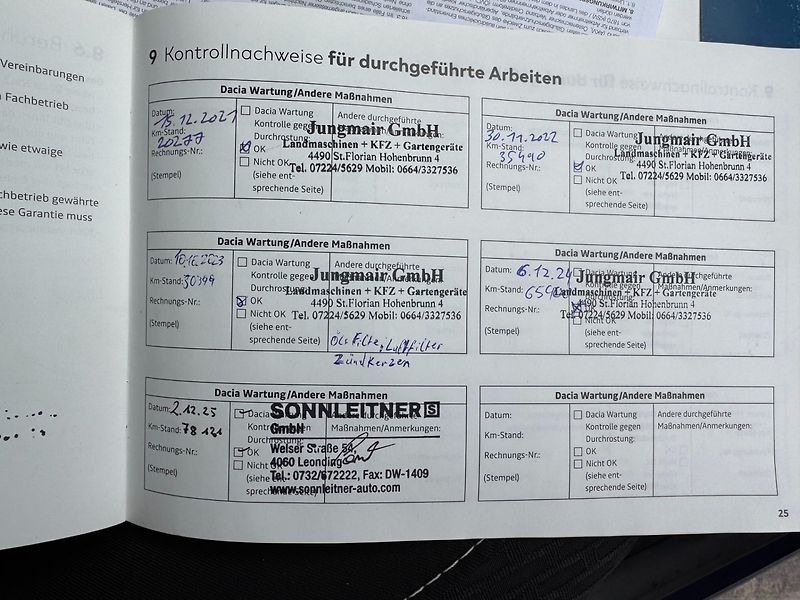 Vereinbarungen
Fachbetrieb
wie etwaige
chbetrieb gewährte
ese Garantie muss
9 Kontrollnachweise für durchgeführte Arbeiten
Dacia Wartung/Andere Maßnahmen
Datum: 15.12.2021
Km-Stand: 20277
Rechnungs-Nr.:
(Stempel)
Dacia Wartung
Kontrolle gegen
Durchrostung:
OK
Nicht OK
(siehe ent-
sprechende Seite)
Andere durchgeführte
Jungmair GmbH
Landmaschinen + KFZ + Gartengeräte
4490 St.Florian Hohenbrunn 4
Tel. 07224/5629 Mobil: 0664/3327536
Dacia Wartung/Andere Maßnahmen
Datum: 30.11.2022
Km-Stand: 35490
Rechnungs-Nr.:
(Stempel)
Dacia Wartung
Kontrolle gegen
Durchrostung:
OK
Nicht OK
(siehe ent-
sprechende Seite)
Andere durchgeführte
Maßnahmen/Anmerkungen:
Jungmair GmbH
Landmaschinen + KFZ + Gartengeräte
4490 St.Florian Hohenbrunn 4
Tel. 07224/5629 Mobil: 0664/3327536
Dacia Wartung/Andere Maßnahmen
Datum:
Km-Stand:
Rechnungs-Nr.:
(Stempel)
Dacia Wartung
Kontrolle gegen
Durchrostung:
OK
Nicht OK
(siehe ent-
sprechende Seite)
Andere durchgeführte
Jungmair GmbH
Landmaschinen + KFZ + Gartengeräte
4490 St.Florian Hohenbrunn 4
Tel. 07224/5629 Mobil: 0664/3327536
Luftfilter
Zündkerzen
Dacia Wartung/Andere Maßnahmen
Datum: 6.12.24
Km-Stand:
Rechnungs-Nr.:
(Stempel)
Dacia Wartung
Kontrolle gegen
Durchrostung:
OK
Nicht OK
(siehe ent-
sprechende Seite)
Andere durchgeführte
Maßnahmen/Anmerkungen:
Jungmair GmbH
Landmaschinen + KFZ + Gartengeräte
4490 St.Florian Hohenbrunn 4
Tel. 07224/5629 Mobil: 0664/3327536
Dacia Wartung/Andere Maßnahmen
Datum: 2.12.25
Km-Stand: 78 121
Rechnungs-Nr.:
(Stempel)
Dacia
Durchrostung:
OK
Nicht OK
(siehe ent-
sprechende
Maßnahmen/Anmerkungen:
SONNLEITNER S
GmbH
Welser Straße 54,
4060 Leonding
Tel.: 0732/672222, Fax: DW-1409
www.sonnleitner-auto.com
Dacia Wartung/Andere Maßnahmen
Datum:
Km-Stand:
Rechnungs-Nr.:
(Stempel)
Dacia Wartung
Kontrolle gegen
Durchrostung:
OK
Nicht OK
(siehe ent-
sprechende Seite)
Andere durchgeführte
Maßnahmen/Anmerkungen:
25